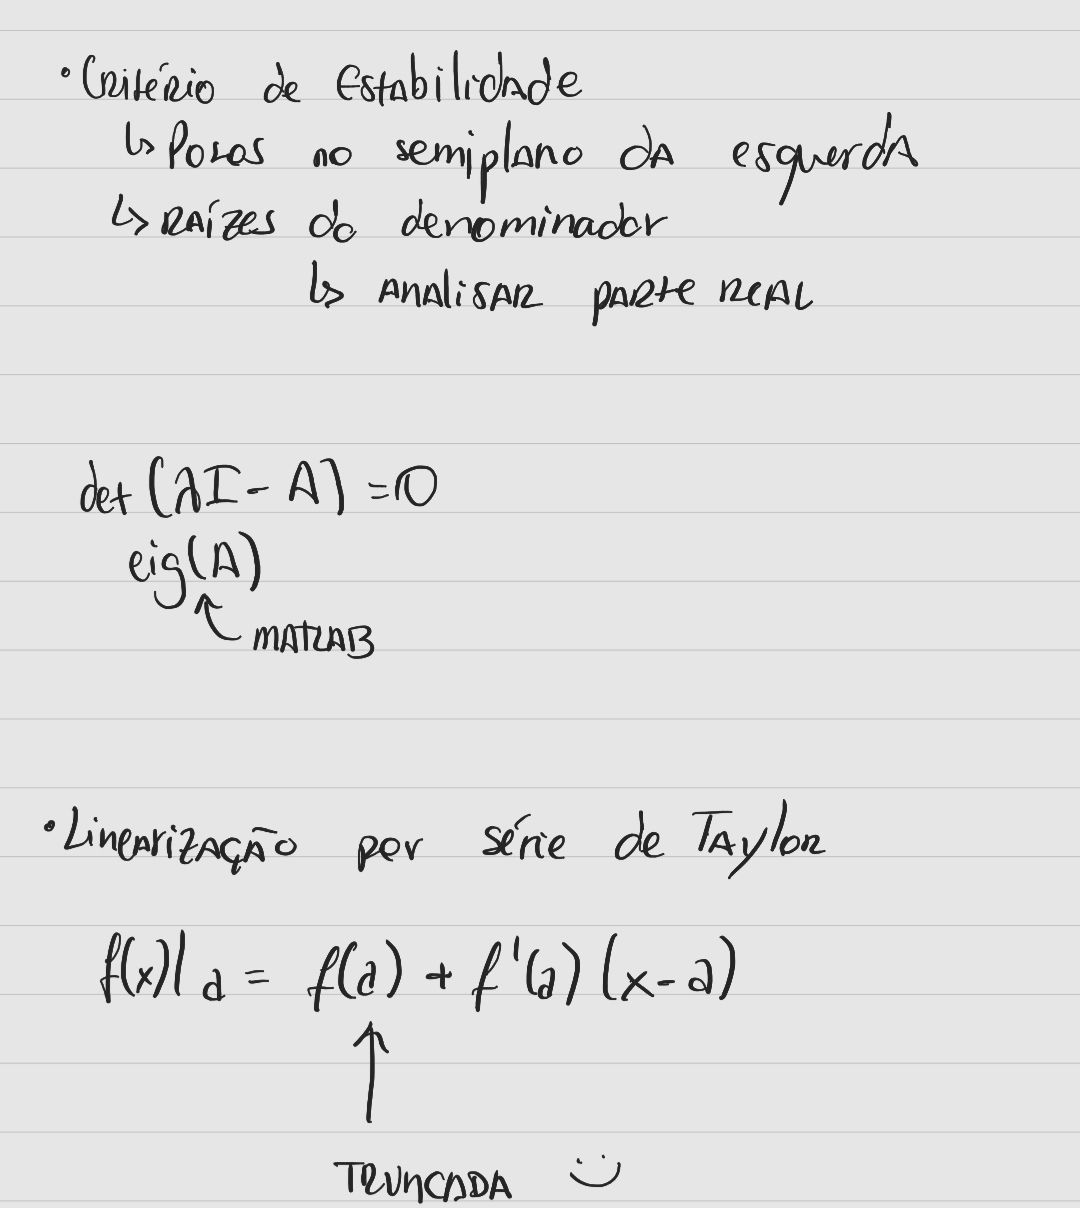 • Critério de Estabilidade
↳ Polos no semiplano da esquerda
↳ raízes do denominador
↳ analisar parte real
det (λI - A) = 0
eig(A)
↖ MATLAB
• Linearização por série de Taylor
f(x)|a = f(a) + f'(a) (x-a)
↑
TRUNCADA :)